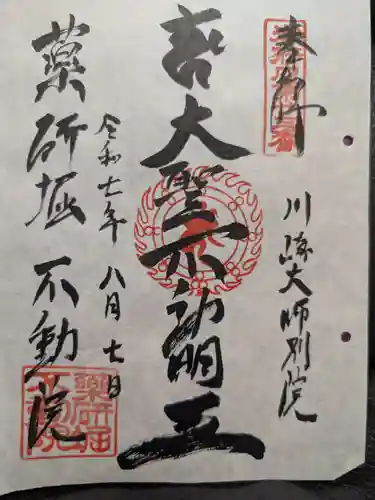 奉拝
川崎大師別院
大聖不動明王
令和七年八月七日
薬研堀不動院